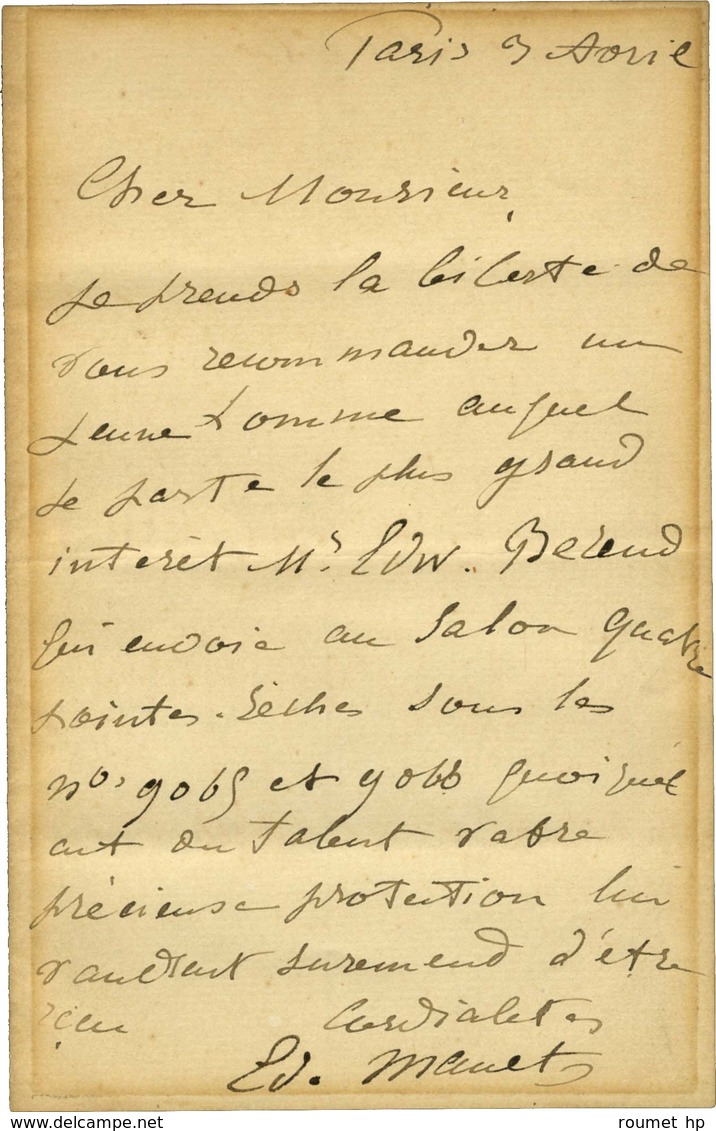 Paris 3 Avril
Cher Monsieur,
je prends la liberté de
vous recommander un
jeune homme auquel
je porte le plus grand
intérêt Mr. Edw. Berend
qui envoie au Salon quatre
pointes-sèches sous les
nos 9065 et 9066 quoiquel
ait du talent votre
précieuse protection lui
vaudrait surement d'être
reçu Cordialités
Ed. Manet
roumet hp